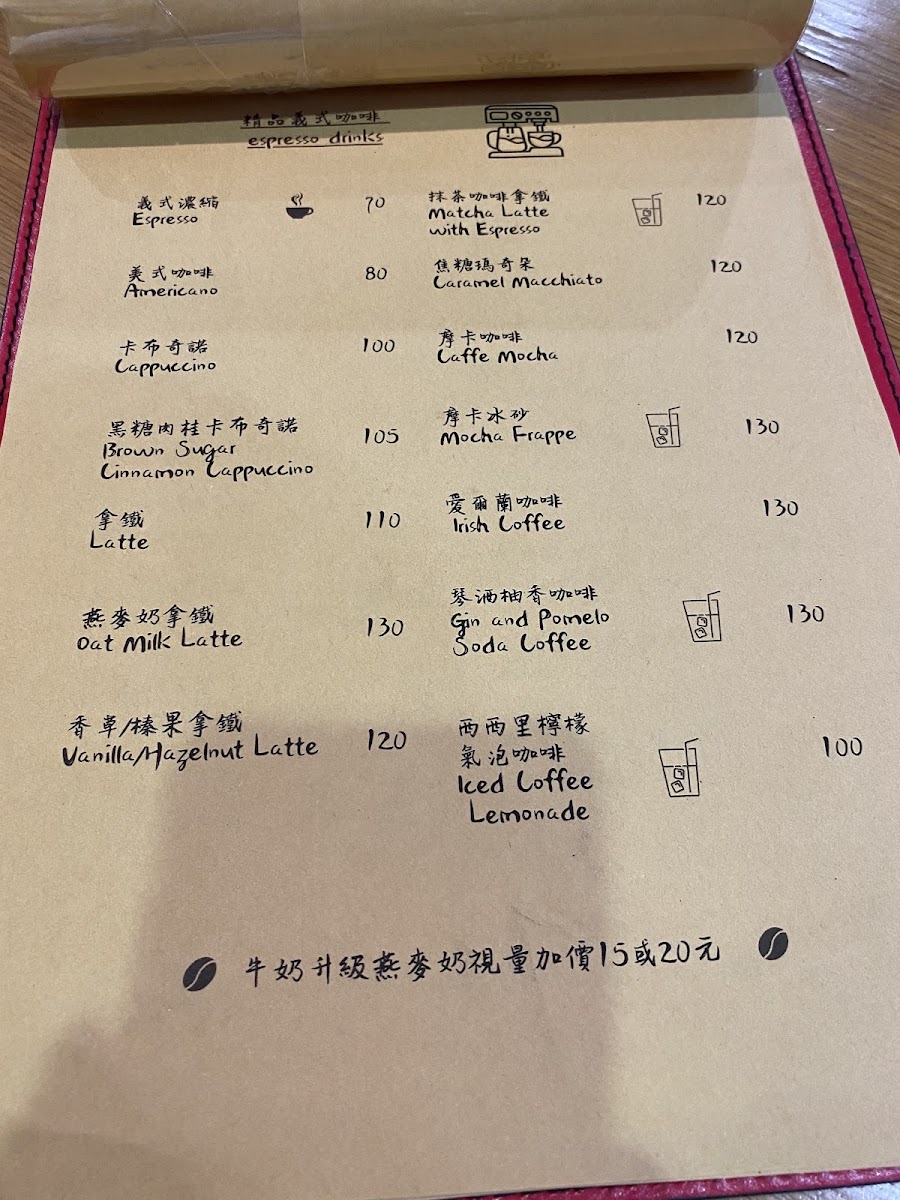 精品義式咖啡
espresso drinks
義式濃縮
Espresso
70
美式咖啡
Americano
80
卡布奇諾
Cappuccino
100
黑糖肉桂卡布奇諾
Brown Sugar
Cinnamon Cappuccino
105
拿鐵
Latte
110
燕麥奶拿鐵
Oat Milk Latte
130
香草/榛果拿鐵
Vanilla/Hazelnut Latte
120
抹茶咖啡拿鐵
Matcha Latte
with Espresso
120
焦糖瑪奇朵
Caramel Macchiato
120
摩卡咖啡
Caffe Mocha
120
摩卡冰砂
Mocha Frappe
130
愛爾蘭咖啡
Irish Coffee
130
琴酒柚香咖啡
Gin and Pomelo
Soda Coffee
130
西西里檸檬
氣泡咖啡
Iced Coffee
Lemonade
100
牛奶升級燕麥奶視量加價15或20元